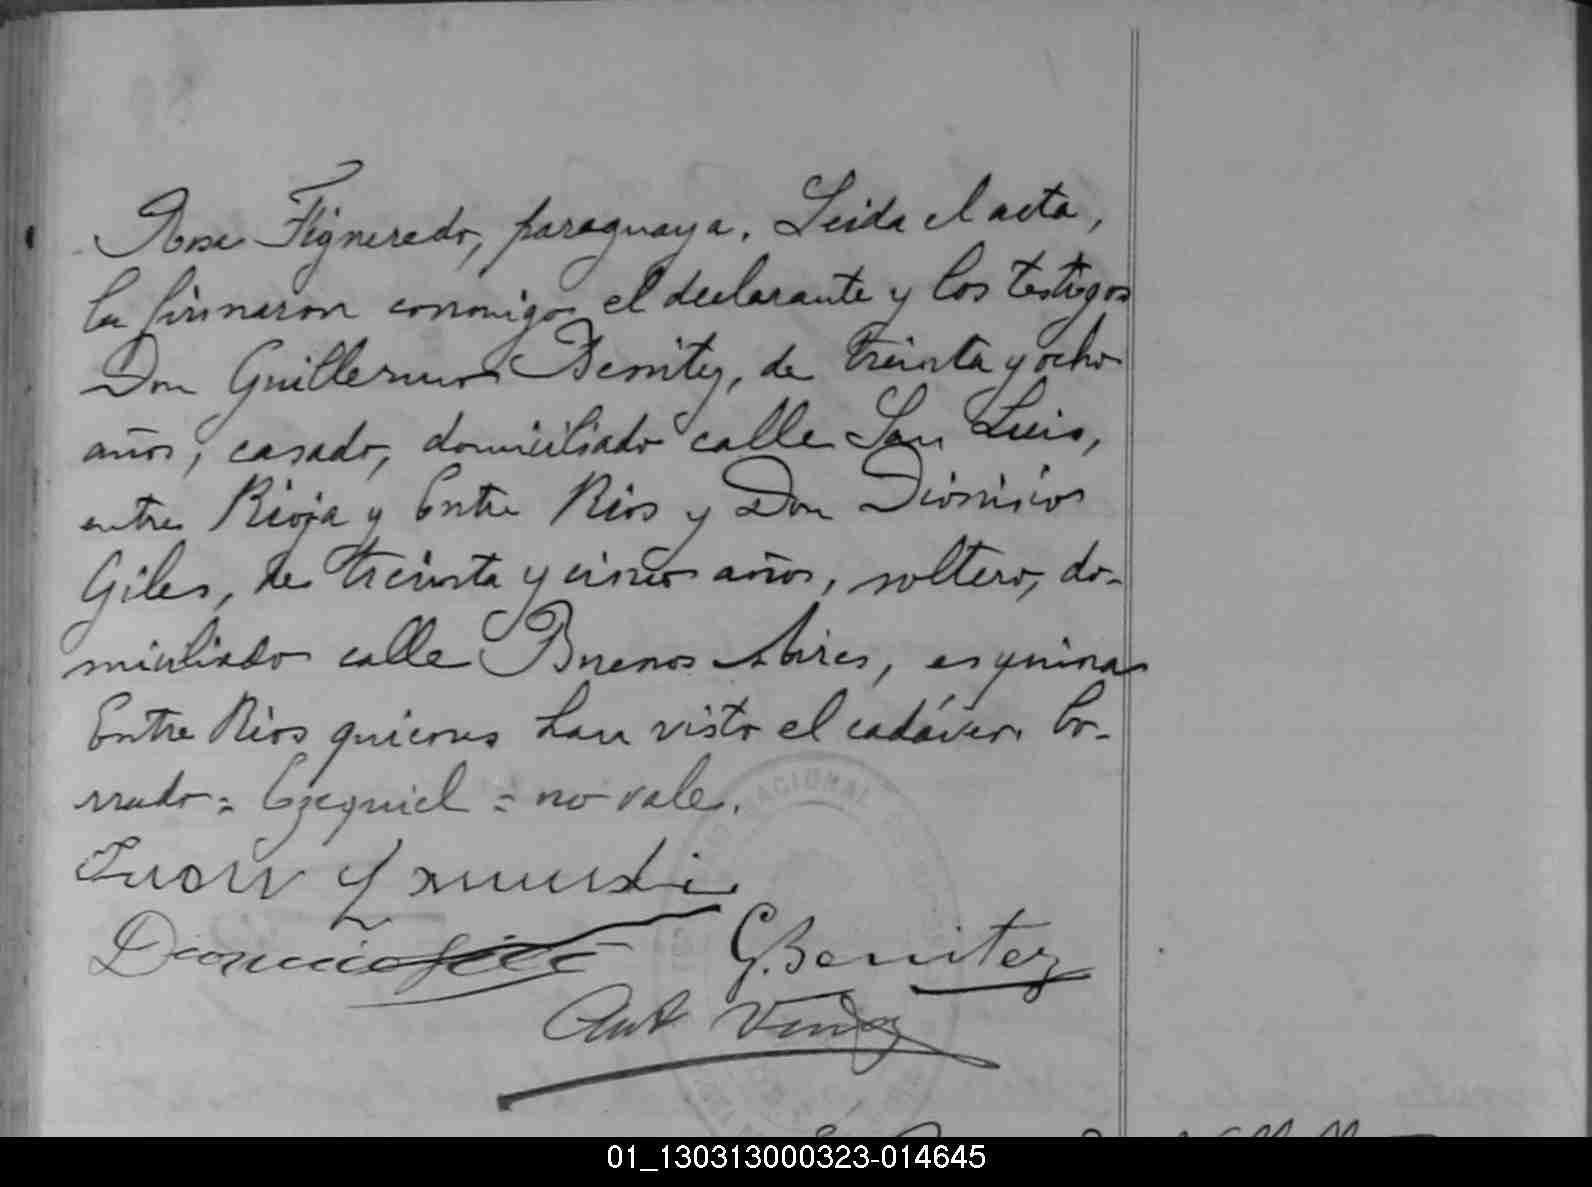 Rosa Figueredo, paraguaya. Leida el acta,
la firmaron conmigo el declarante y los testigos
Don Guillermo Benitez, de treinta y ocho
años, casado, domiciliado calle San Luis,
entre Rioja y Entre Rios y Don Dionisio
Giles, de treinta y cinco años, soltero, do-
miciliado calle Buenos Aires, esquina
Entre Rios quienes han visto el cadáver. Bo-
rrado = Ezequiel = no vale.
Juan
Dionicio Giles G. Benitez
Ant
NACIONAL
01_130313000323-014645